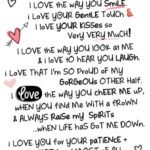 I LOVE THE WAY YOU SMILE,
I LOVE YOUR GENTLE TOUCH &
I LOVE YOUR KISSES SO
VERY VERY MUCH!
I LOVE THE WAY YOU LOOK AT ME
& I LOVE TO HEAR YOU LAUGH.
I LOVE THAT I'M SO PROUD OF MY
GORGEOUS OTHER HALF.
I Love THE WAY YOU CHEER ME UP,
WHEN YOU FIND ME WITH A FROWN
& ALWAYS RAISE MY SPIRITS
...WHEN LIFE HAS GOT ME DOWN.
I LOVE YOU FOR YOUR PATIENCE +